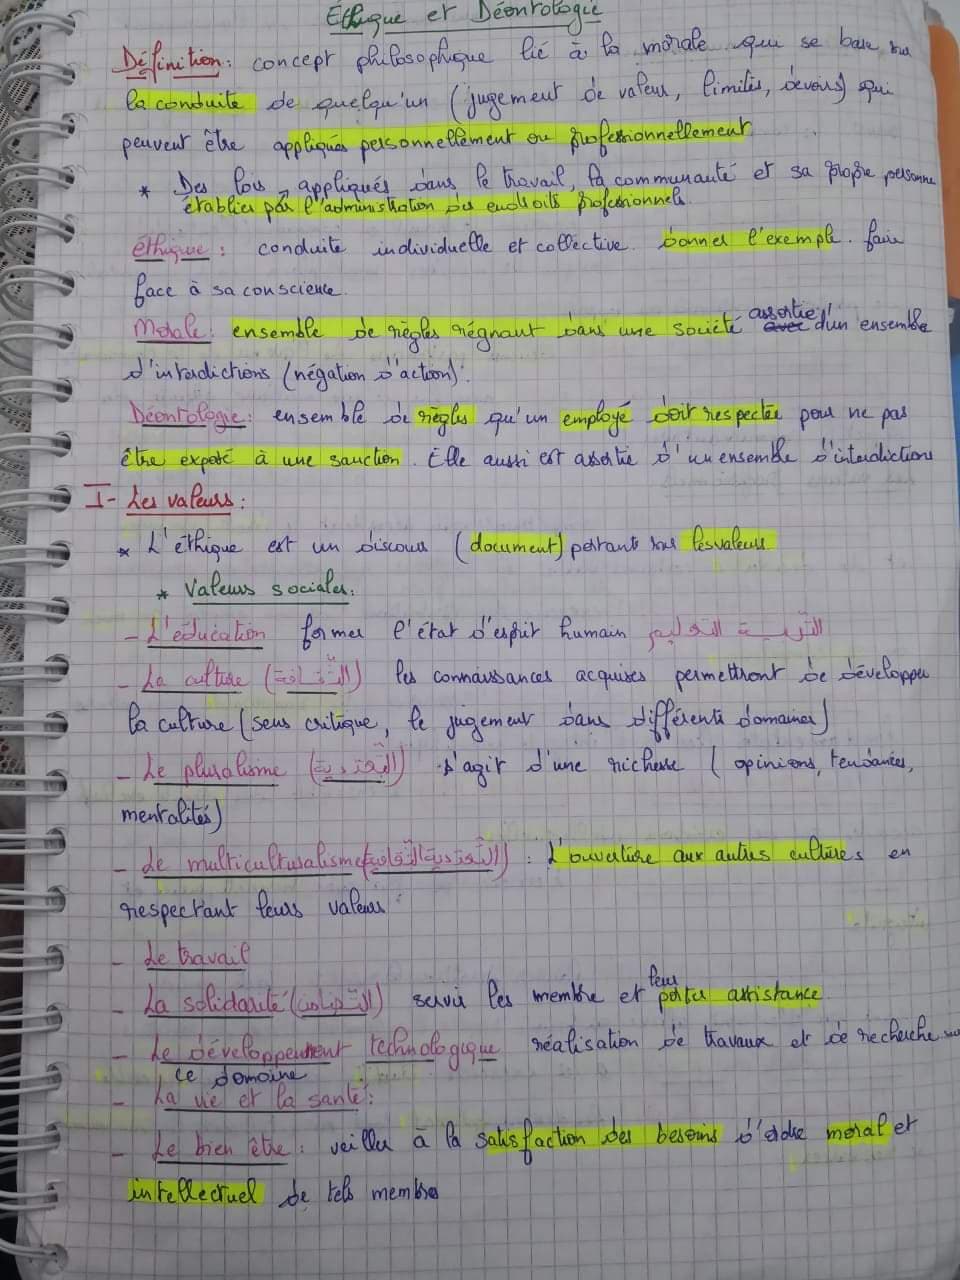 Éthique et Déontologie
Définition : concept philosophique lié à la morale qui se base sur
la conduite de quelqu'un (jugement de valeur, limites, devoirs) qui
peuvent être appliqués personnellement ou professionnellement
* Des lois appliqués dans le travail, la communauté et sa propre personne
établies par l'administration des endroits professionnels.
éthique : conduite individuelle et collective. donner l'exemple. faire
face à sa conscience.
Morale : ensemble de règles régnant dans une société assortie d'un ensemble
d'interdictions (négation d'action).
Déontologie : ensemble de règles qu'un employé doit respecter pour ne pas
être exposé à une sanction. Elle aussi est assortie d'un ensemble d'interdictions
I- Les valeurs :
* L'éthique est un discours (document) portant sur les valeurs
* Valeurs sociales :
- L'éducation former l'état d'esprit humain التربية التعليم
- La culture (الثقافة) les connaissances acquises permettront de développer
la culture (sens critique, le jugement dans différents domaines)
- Le pluralisme (التعددية) s'agit d'une richesse (opinions, tendances,
mentalités)
- Le multiculturalisme (التعددية الثقافية) : L'ouverture aux autres cultures en
respectant leurs valeurs.
- Le travail
- La solidarité (التضامن) servir les membre et leur porter assistance.
- Le développement technologique réalisation de travaux et de recherche sur
ce domaine
- La vie et la santé :
- Le bien être : veiller à la satisfaction des besoins d'ordre moral et
intellectuel de tels membres